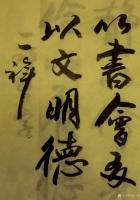 以書會友
以文明德
一禅